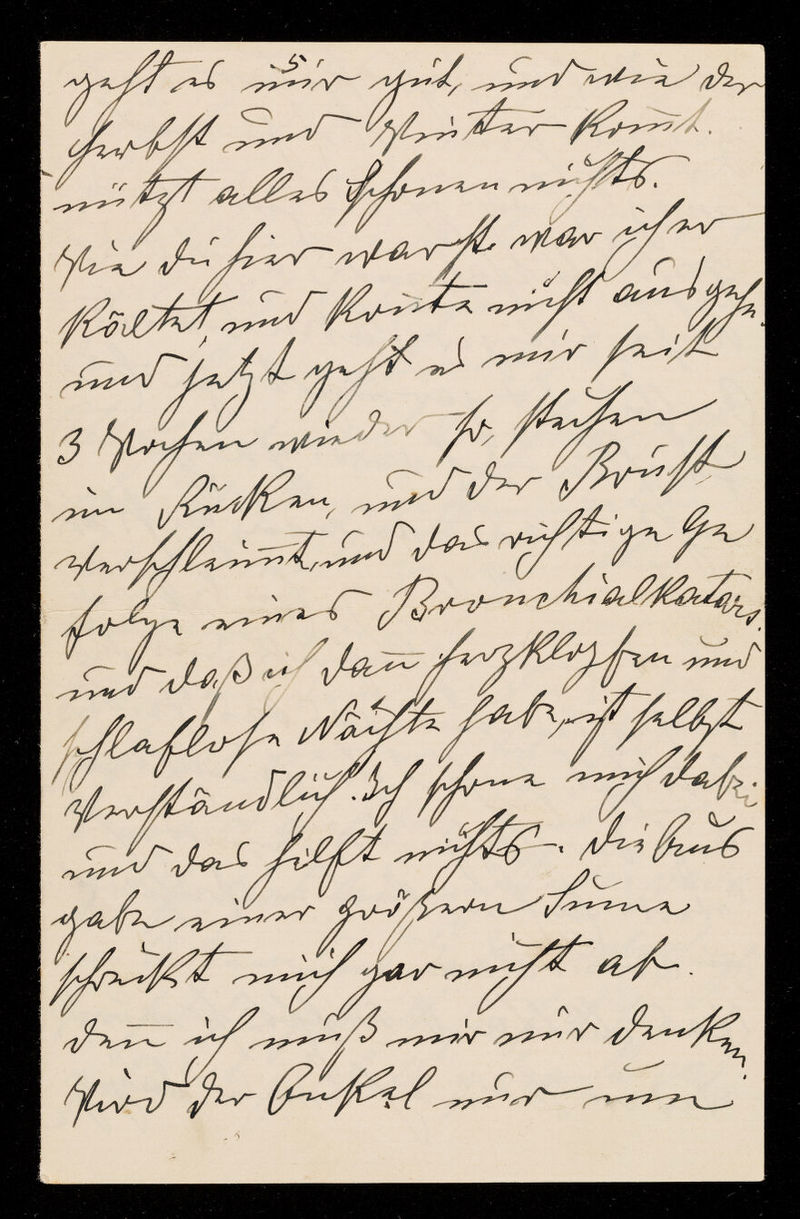 5
geht es mir gut, und wie der
Herbst und Winter kom̄t.
nützt alles Schonen nichts.
Wie du hier warst war ich er
kältet, und kon̄te nicht ausgehen.
und jetzt geht es mir seit
3 Wochen wieder so, stechen
im Rücken, und der Brust,
verschleim̄t, und das richtige Ge
folge eines Bronchialkatars.
und daß ich dan̄ Herzklopfen und
schlaflose Nächte habe, ist selbst
verständlich. Ich schone mich dabei
und das hilft nichts. Die Aus
gabe einer größern Sume
schrickt mich gar nicht ab.
den̄ ich muß mir nur denken.
Wird der Onkel nur um